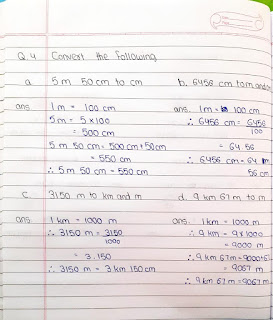 Q.4 Convert the following
a 5 m 50 cm to cm
ans. 1 m = 100 cm
5 m = 5 x 100
= 500 cm
5 m 50 cm = 500 cm + 50 cm
= 550 cm
∴ 5 m 50 cm = 550 cm
b. 6456 cm to m and
ans. 1 m = 100 cm
∴ 6456 cm = 6456
100
= 64.56
∴ 6456 cm = 64 m
56 cm
c. 3150 m to km and m
ans 1 km = 1000 m
∴ 3150 m = 3150
1000
= 3.150
∴ 3150 m = 3 km 150 cm
d. 9 km 67 m to m
ans. 1 km = 1000 m
∴ 9 km = 9 x 1000
= 9000 m
∴ 9 km 67 m = 9000 + 67
= 9067 m
∴ 9 km 67 m = 9067 m